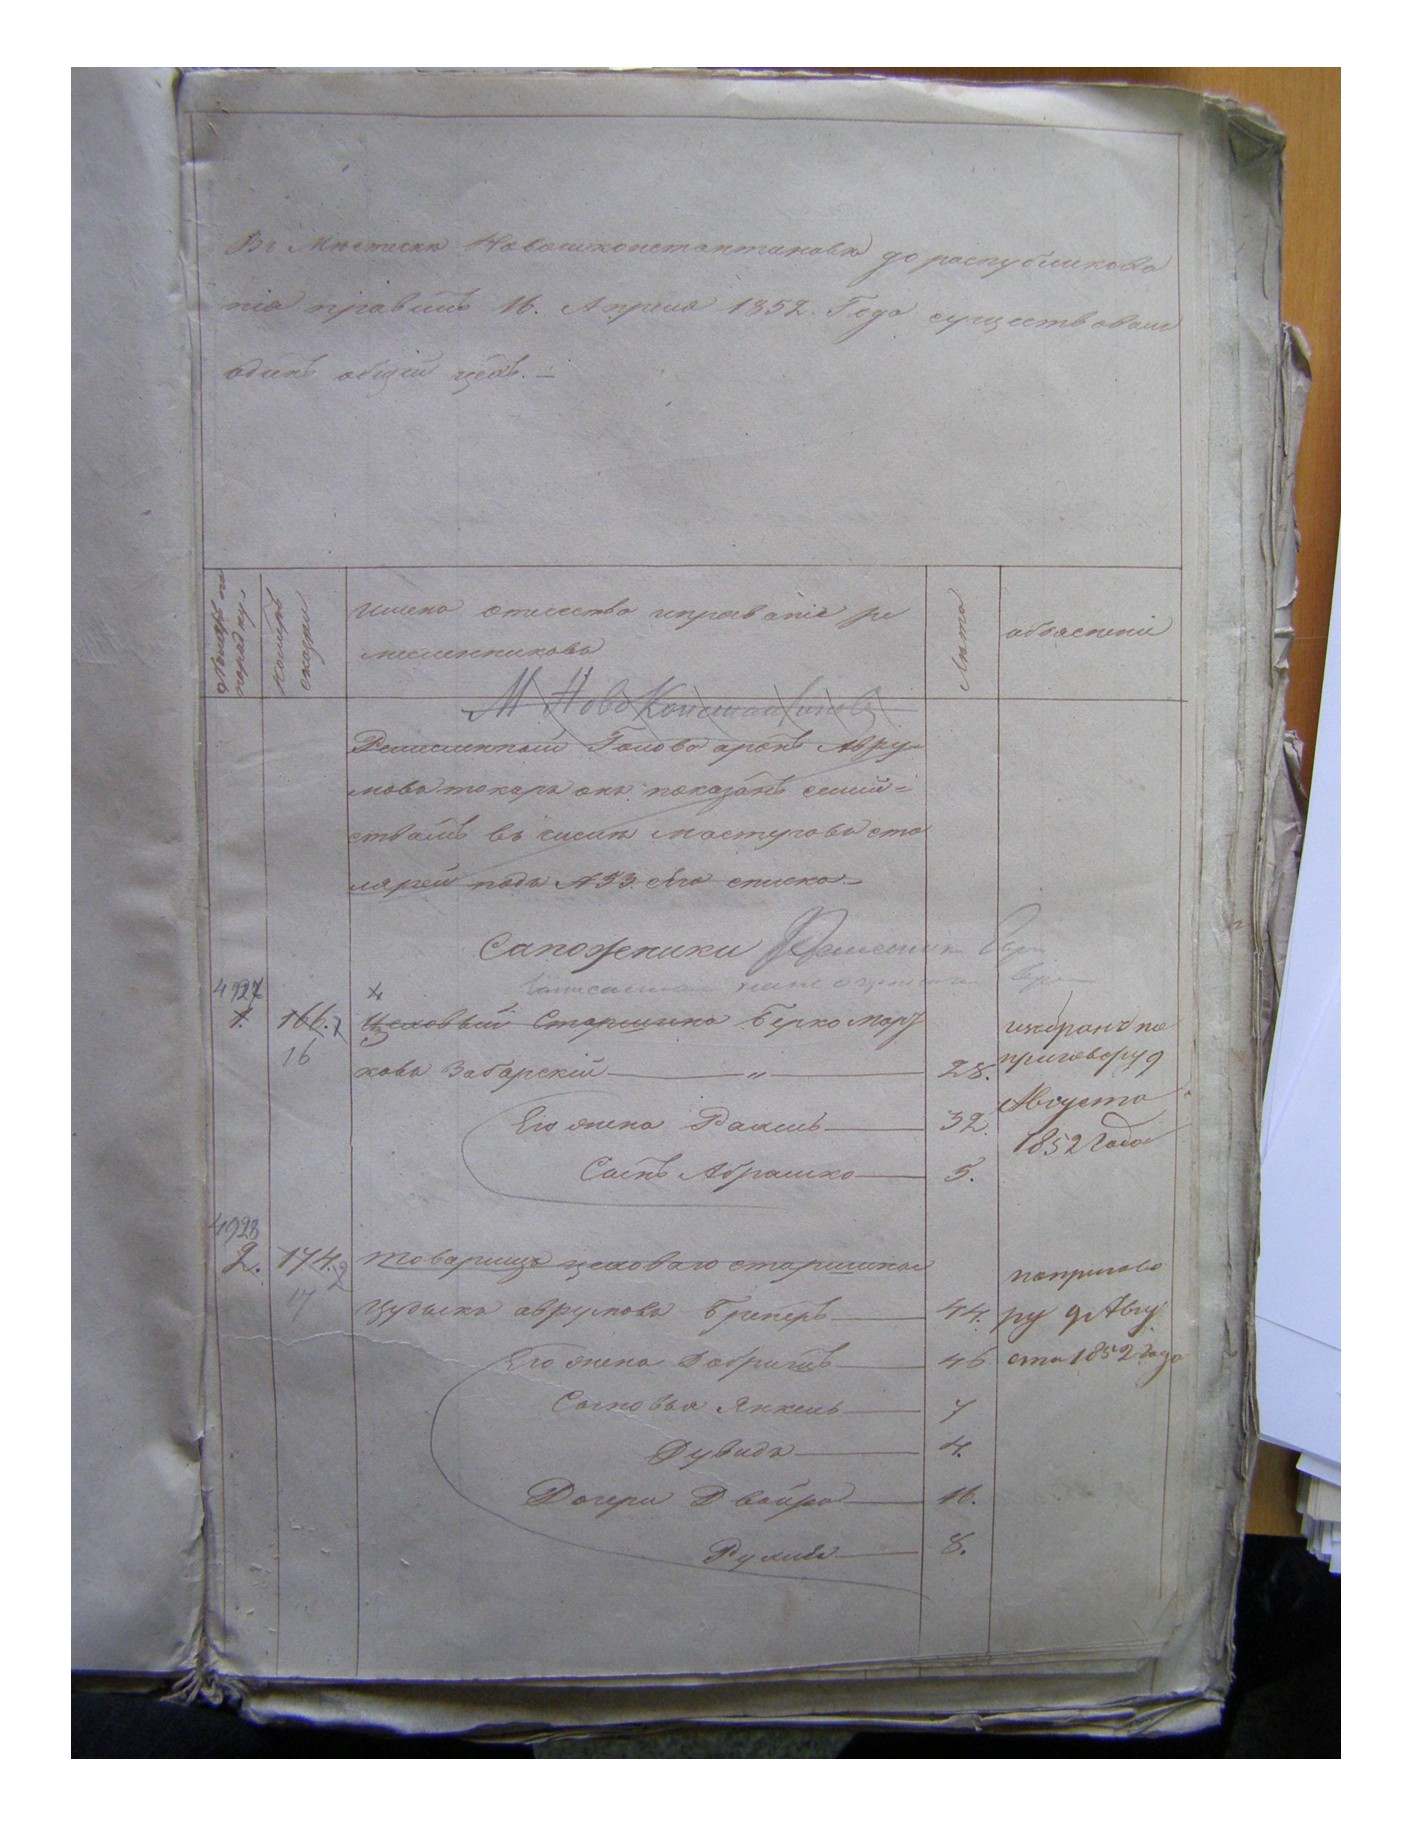 Въ Мѣстечкѣ Новоконстантиновѣ до распубликова
нія правилъ 16. Апреля 1852. Года существовалъ
одинъ общій цехъ. —
Номеръ по порядку
Номеръ сказки
Имена отчество и прозваніе ре
месленниковъ
Лѣта
объясненіе
М. Ново Константиновъ
Ремесленный Голова аронъ Авру-
мовъ токарь онъ показанъ съ семей=
ствомъ въ числѣ сто
лярей подъ №53. сего списка —
Сапожники
4927
1. 166. 1 Цеховый Старшина Берко Мор
16
ковъ Забарскій — " — 28.
избранъ по
приговору 9
Августа
1852 Года
Его жена Рахель — 32.
Сынъ Абрашко — 5.
4928
2. 174. 2 Товарищъ цеховаго старшины
17
аврумовъ — 44.
попригово
ру 9 Авгу
ста 1852 года
Его жена Добришъ — 46
Сыновья Янкель — 7
Дувидъ — 4.
Дочери Двойра — 16.
Рухля — 8.